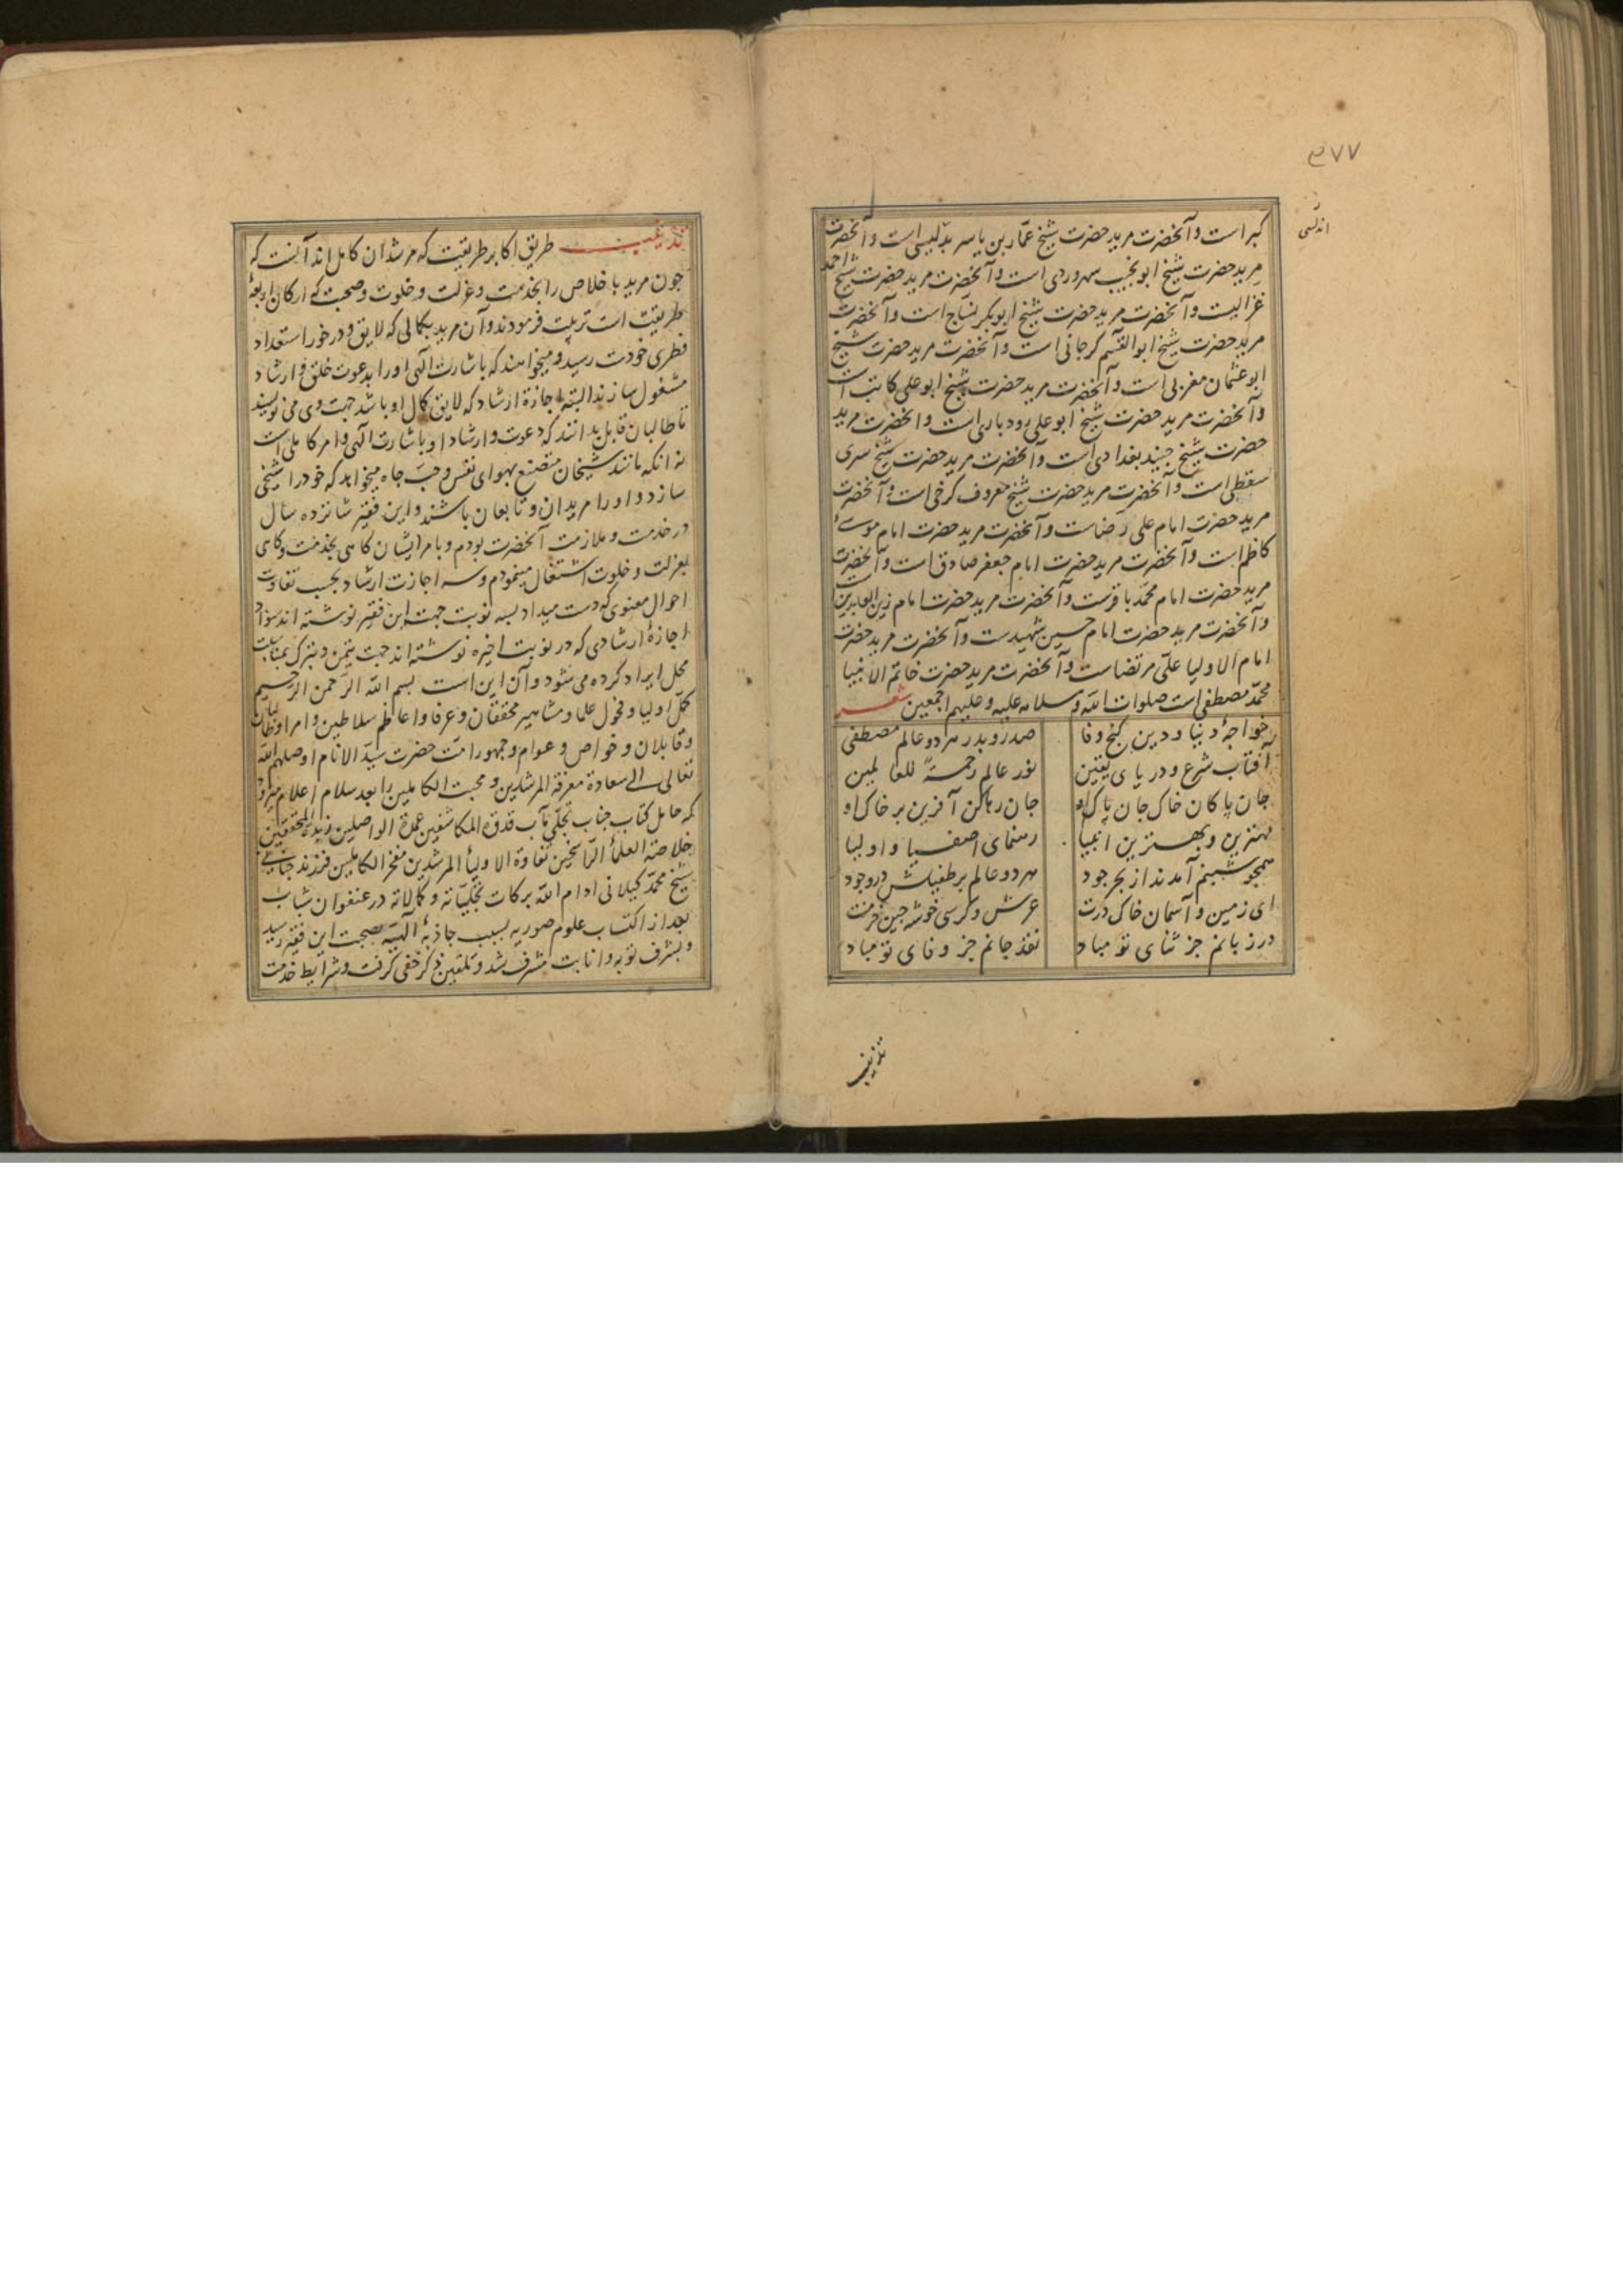 ۳۷۷
اندلسی
کبر است و آنحضرت مرید حضرت شیخ عمّار بن یاسر بدلیسی است و آنحضرت
مرید حضرت شیخ ابو نجیب سهروردی است و آنحضرت مرید حضرت شیخ احمد
غزالیست و آنحضرت مرید حضرت شیخ ابوبکر نساج است و آنحضرت
مرید حضرت شیخ ابوالقسم کرجانی است و آنحضرت مرید حضرت شیخ
ابو عثمان مغربی است و آنحضرت مرید حضرت شیخ ابو علی کاتب است
و آنحضرت مرید حضرت شیخ ابو علی رودباری است و آنحضرت مرید
حضرت شیخ جنید بغدادی است و آنحضرت مرید حضرت شیخ سری
سقطی است و آنحضرت مرید حضرت شیخ معروف کرخی است و آنحضرت
مرید حضرت امام علی رضاست و آنحضرت مرید حضرت امام موسی
کاظم است و آنحضرت مرید حضرت امام جعفر صادق است و آنحضرت
مرید حضرت امام محمّد باقرست و آنحضرت مرید حضرت امام زین العابدین است
و آنحضرت مرید حضرت امام حسین شهیدست و آنحضرت مرید حضرت
امام الاولیا علی مرتضاست و آنحضرت مرید حضرت خاتم الانبیا
محمّد مصطفی است صلوات الله و سلامه علیه و علیهم اجمعین شعر
خواجهٔ دنیا و دین کنج وفا صدر و بدر هر دو عالم مصطفی
آفتاب شرع و دریای یقین نور عالم رحمةً للعالمین
جان پاکان خاک جان پاک او جان رها کن آفرین بر خاک او
بهترین و بهترین انبیا رهنمای اصفیا و اولیا
همچو شبنم آمدند از بحر جود هر دو عالم بر طفیلش در وجود
ای زمین و آسمان خاک درت عرش و کرسی خوشه چین خرمنت
در زبانم جز ثنای تو مباد نقد جانم جز وفای تو مباد
تذنیب
تذنیب طریق اکابر طریقت که مرشدان کامل اند آنست که
چون مرید باخلاص را بخدمت و عزلت و خلوت و صحبت که ارکان اربعهٔ
طریقت است تربیت فرمودند و آن مرید بکمالی که لایق و در خور استعداد
فطری خودت رسید و میخواهند که باشارت الهی او را بدعوت خلق و ارشاد
مشغول سازند البته اجازهٔ ارشاد که لایق کمال او باشد جهت وی می نویسند
تا طالبان قابل بدانند که دعوت و ارشاد او باشارت الهی و امر کاملی است
نه آنکه مانند شیخان متصنع بهوای نفس و حبّ جاه میخواهد که خود را شیخی
سازد و او را مریدان و تابعان باشند و این فقیر شانزده سال
در خدمت و ملازمت آنحضرت بودم و بامر ایشان کاهی بخدمت و کاهی
بعزلت و خلوت اشتغال مینمودم و سه اجازت ارشاد بحسب تفاوت
احوال معنوی که دست میداد بسه نوبت جهت این فقیر نوشته اند سواد
اجازهٔ ارشادی که در نوبت اخیره نوشته اند جهت تیمّن و تبرک بمناسبت
محل ایراد کرده می شود و آن این است بسم الله الرّحمن الرّحیم
کمّل اولیا و فحول علما و مشاهیر محققان و عرفا و اعاظم سلاطین و امرا و طالبان
و قابلان و خواص و عوام و جمهور امّت حضرت سیّد الانام اوصلهم الله
تعالی الی سعادة معرفة المرشدین و محبت الکاملین را بعد سلام اعلام میرود
که حامل کتاب جناب تجلّی مآب قدوة المکاشفین عمدة الواصلین زبدة المحققین
خلاصة العلمأ الرّاسخین نقاوة الاولیأ المرشدین مفخر الکاملین فرزند جانی
شیخ محمّد کیلانی ادام الله برکات تجلّیاته و کمالاته در عنفوان شباب
بعد از اکتساب علوم صوریه بسبب جاذبهٔ الهیّه بصحبت این فقیر رسید
و بشرف توبه و انابت مشرف شد و تلقین ذکر خفی کرفت و شرایط خدمت